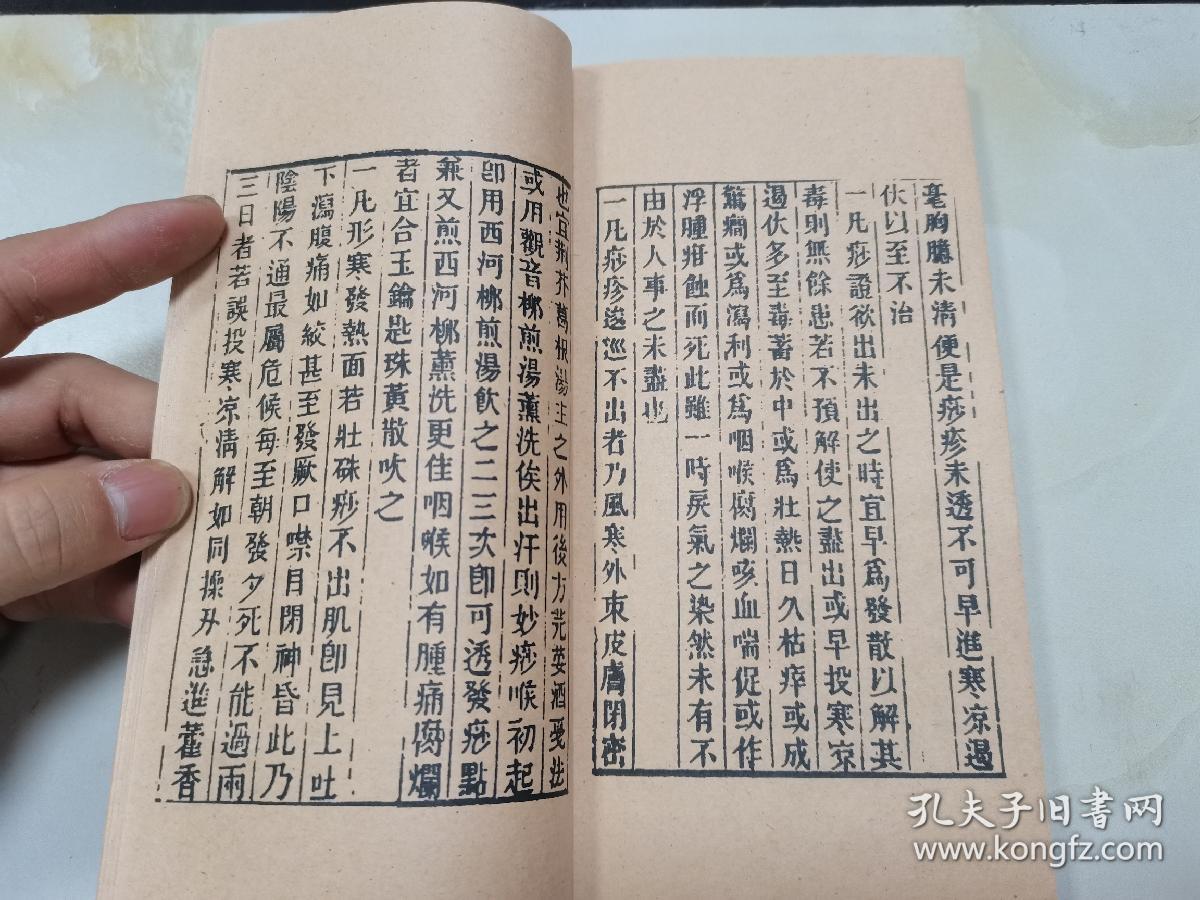 毫胸臆未清便是痧疹未透不可早進寒凉遏
伏以至不治
一凡痧證欲出未出之時宜早爲發散以解其
毒則無餘患若不預解使之盡出或早投寒凉
遏伏多至毒蓄於中或爲壯熱日久枯瘁或成
驚癎或爲瀉利或爲咽喉腐爛咳血喘促或作
浮腫疳蝕而死此雖一時戾氣之染然未有不
由於人事之未盡也
一凡痧疹逡巡不出者乃風寒外束皮膚閉密
也宜荆芥葛根湯主之外用後方芫荽酒
或用觀音柳煎湯薰洗俟出汗則妙痧喉初起
卽用西河柳煎湯飮之二三次卽可透發痧點
兼又煎西河柳薰洗更佳咽喉如有腫痛腐爛
者宜合玉鑰匙珠黃散吹之
一凡形寒發熱面若壯硃痧不出肌卽見上吐
下瀉腹痛如絞甚至發厥口噤目閉神昏此乃
陰陽不通最屬危候每至朝發夕死不能過兩
三日者若誤投寒凉清解如同操刃急進藿香
孔夫子旧书网
www.kongfz.com